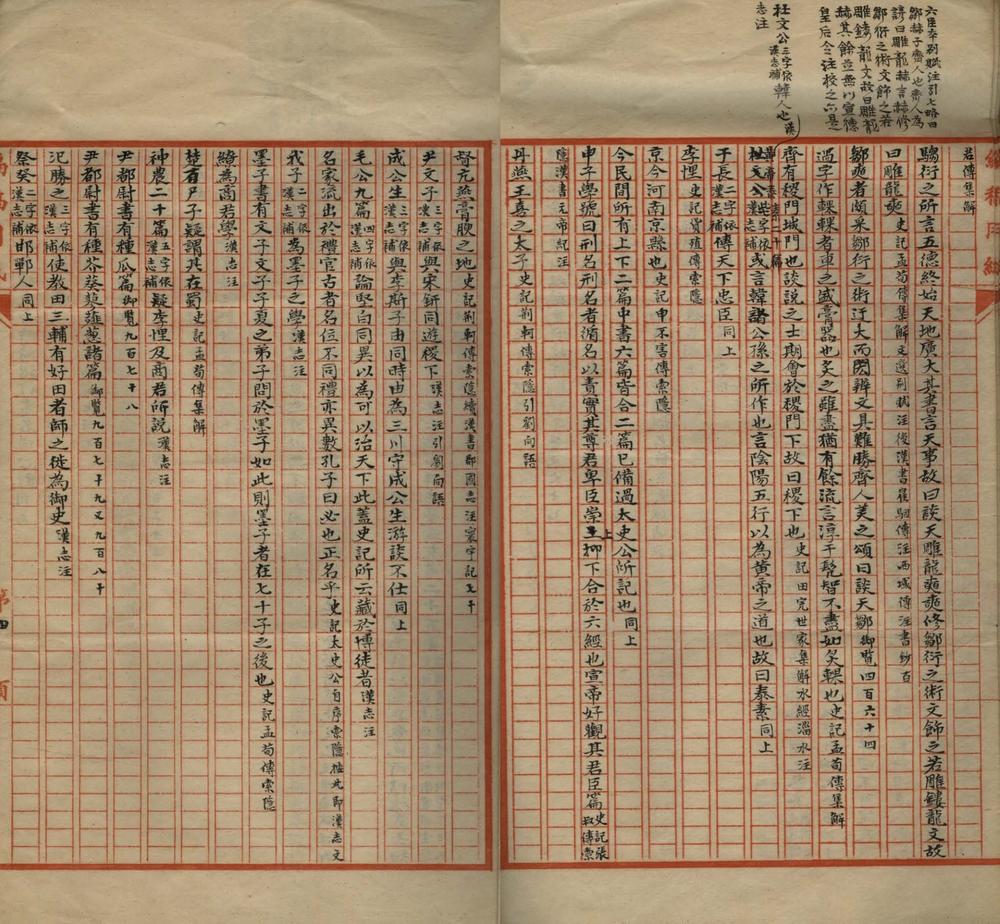 六臣本别賦注引七略曰
鄒赫子齊人也齊人為
諺曰雕龍赫言赫修
鄒衍之術文飾之若
雕鏤龍文故曰雕龍
赫其餘並無以宣德
皇后令注校之亦是
杜文公三字依漢志補韓人也漢
志注
荀傳集解
騶衍之所言五德終始天地廣大其書言天事故曰談天雕龍奭奭修鄒衍之術文飾之若雕鏤龍文故
曰雕龍奭 史記孟荀傳集解文選别賦注後漢書崔駰傳注西域傳注書鈔百
鄒奭者頗采鄒衍之術迂大而閎辨文具難勝齊人美之頌曰談天鄒御覽四百六十四
過字作輠輠者車之盛膏器也炙之雖盡猶有餘流言淳于髡智不盡如炙輠也史記孟荀傳集解
齊有稷門城門也談說之士期會於稷門下故曰稷下也史記田完世家集解水經淄水注
或言韓諸公孫之所作也言陰陽五行以為黃帝之道也故曰泰素同上
于長漢志補傳天下忠臣同上
李悝史記貨殖傳索隱
京今河南京縣也史記申不害傳索隱
今民間所有上下二篇中書六篇皆合二篇已備過太史公所記也同上
申子學號曰刑名刑名者循名以責實其尊君卑臣崇上抑下合於六經也宣帝好觀其君臣篇史記張叔傳索
隱漢書元帝紀注
丹燕王喜之太子史記荊軻傳索隱引劉向語
督亢燕膏腴之地史記荊軻傳索隱續漢書郡國志注寰宇記七十
尹文子三字依漢志補與宋鈃同遊稷下漢志注引劉向語
成公生三字依漢志補與李斯子由同時由為三川守成公生游談不仕同上
毛公九篇四字依漢志補論堅白同異以為可以治天下此蓋史記所云藏於博徒者漢志注
名家流出於禮官古者名位不同禮亦異數孔子曰必也正名乎史記太史公自序索隱據此即漢志文
我子二字依漢志補為墨子之學漢志注
墨子書有文子文子子夏之弟子問於墨子如此則墨子者在七十子之後也史記孟荀傳索隱
繚為商君學漢志注
楚有尸子疑謂其在蜀史記孟荀傳集解
神農二十篇五字依漢志補疑李悝及商君所說漢志注
尹都尉書有種瓜篇御覽九百七十八
尹都尉書有種芥葵蓼薤蔥諸篇御覽九百七十九又九百八十
氾勝之三字依漢志補使教田三輔有好田者師之徙為御史漢志注
蔡癸二字依漢志補邯鄲人同上